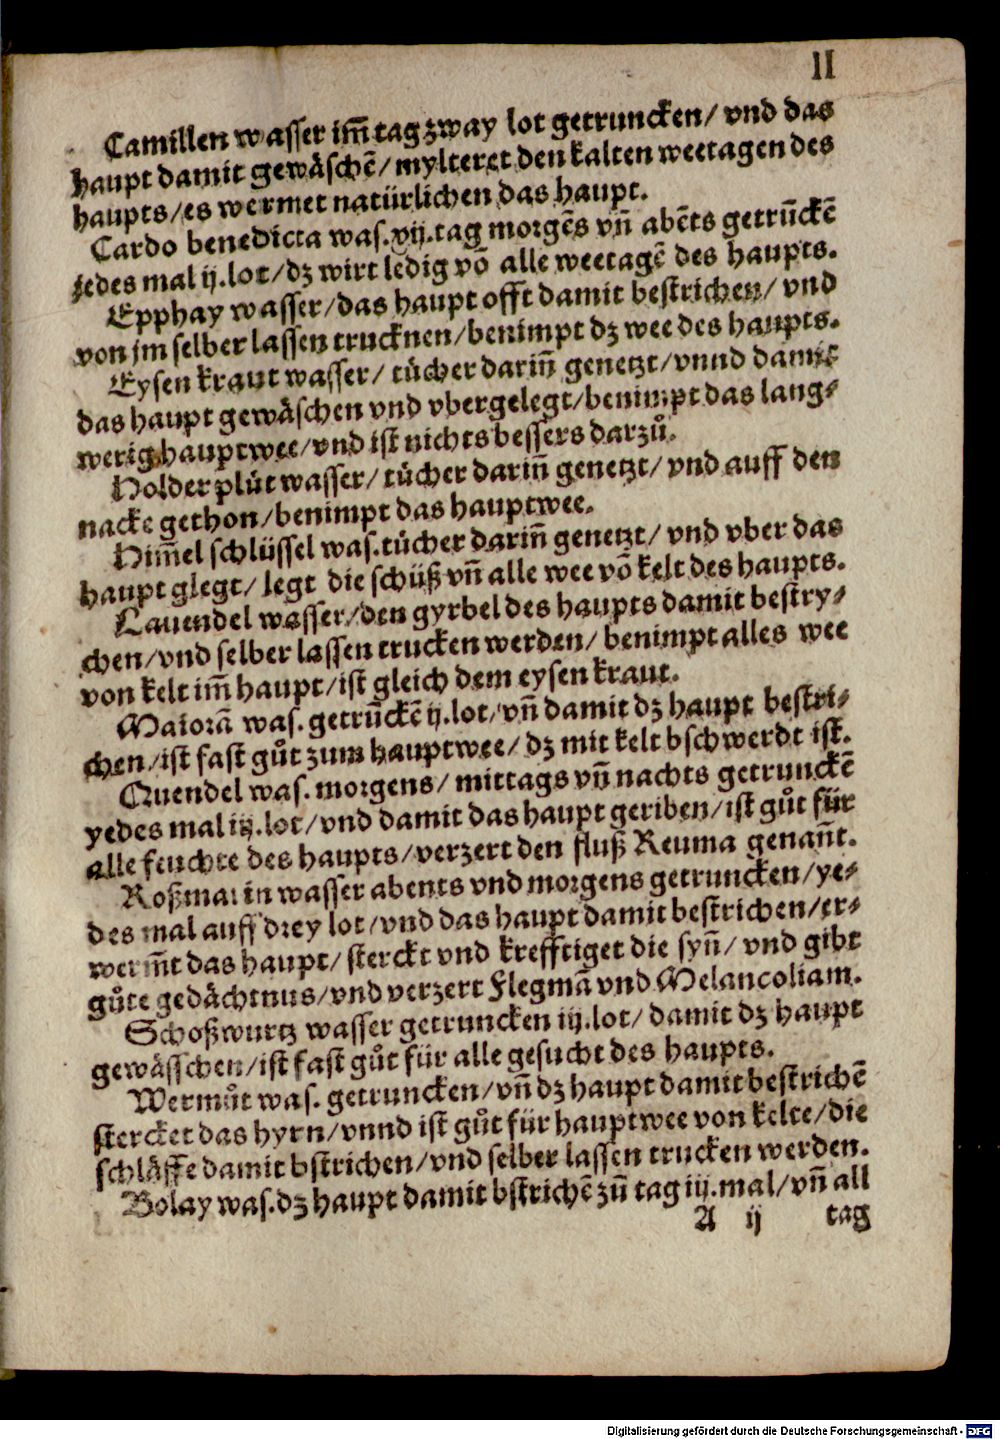 II
Camillen wasser im̃ tag zway lot getruncken/ vnd das
haupt damit gewäschē/ mylteret den kalten weetagen des
haupts/es wermet natürlichen das haupt.
Cardo benedicta was.vij.tag morgēs vñ abēts getrũckē
jedes mal ij.lot/dz wirt ledig vō alle weetagē des haupts.
Epphay wasser/das haupt offt damit bestrichen/ vnd
von jm selber lassen trucknen/benimpt dz wee des haupts.
Eysen kraut wasser/ tůcher dariñ genetzt/vnnd damit
das haupt gewäschen vnd vbergelegt/benimpt das lang-
werig hauptwee/vnd ist nichts bessers darzů.
Holder plůt wasser/ tůcher dariñ genetzt/ vnd auff den
nacke gethon/benimpt das hauptwee.
Him̃el schlüssel was.tůcher dariñ genetzt/ vnd vber das
haupt glegt/ legt die schüß vñ alle wee vō kelt des haupts.
Lauendel wasser/den gyrbel des haupts damit bestry-
chen/vnd selber lassen trucken werden/ benimpt alles wee
von kelt im̃ haupt/ist gleich dem eysen kraut.
Maiorā was. getrũckē ij.lot/vñ damit dz haupt bestri-
chen/ist fast gůt zum hauptwee/ dz mit kelt bschwerdt ist.
Quendel was. morgens/ mittags vñ nachts getrunckē
yedes mal iij.lot/vnd damit das haupt geriben/ist gůt für
alle feuchte des haupts/verzert den fluß Reuma genañt.
Roßmarin wasser abents vnd morgens getruncken/ye-
des mal auff drey lot/vnd das haupt damit bestrichen/er-
werm̃t das haupt/ sterckt vnd krefftiget die syñ/ vnd gibt
gůte gedächtnus/vnd verzert Flegmā vnd Melancoliam.
Schoßwurtz wasser getruncken iij.lot/ damit dz haupt
gewässchen/ist fast gůt für alle gesucht des haupts.
Wermůt was. getruncken/vñ dz haupt damit bestrichē
stercket das hyrn/vnnd ist gůt für hauptwee von kelte/die
schläffe damit bstrichen/vnd selber lassen trucken werden.
Bolay was.dz haupt damit bstrichē zũ tag iij.mal/vñ all
A ij tag
Digitalisierung gefördert durch die Deutsche Forschungsgemeinschaft - DFG